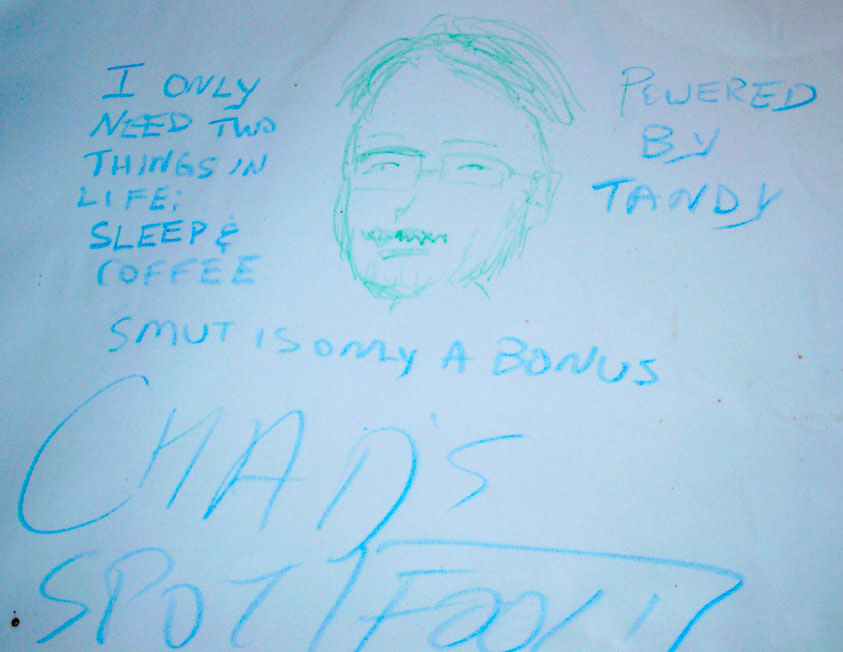 I ONLY
NEED TWO
THINGS IN
LIFE:
SLEEP &
COFFEE
POWERED
BY
TANDY
SMUT IS ONLY A BONUS
CHAD'S
SPOT